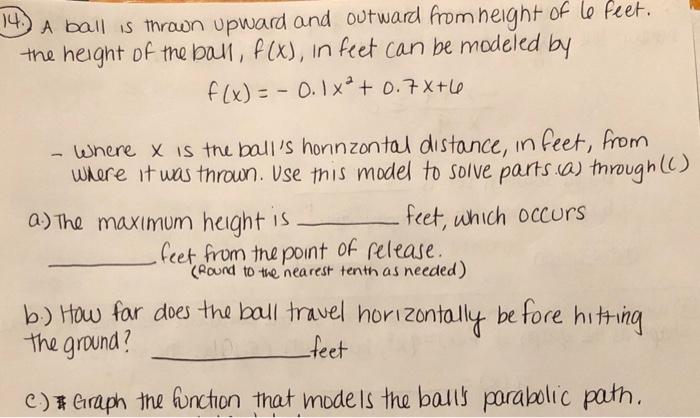 14.) A ball is thrown upward and outward from height of 6 feet.
the height of the ball, f(x), in feet can be modeled by
f(x) = - 0.1x² + 0.7x+6
- where x is the ball's horinzontal distance, in feet, from
where it was thrown. Use this model to solve parts (a) through (c)
a.) The maximum height is ________ feet, which occurs
________ feet from the point of release.
(Round to the nearest tenth as needed)
b.) How far does the ball travel horizontally before hitting
the ground? ________ feet
c.) Graph the function that models the ball's parabolic path.